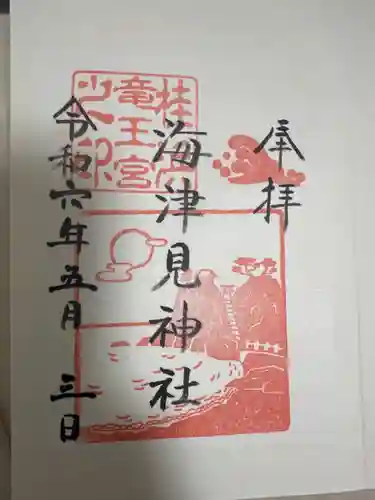 奉拝
海津見神社
令和六年五月三日
竜王宮